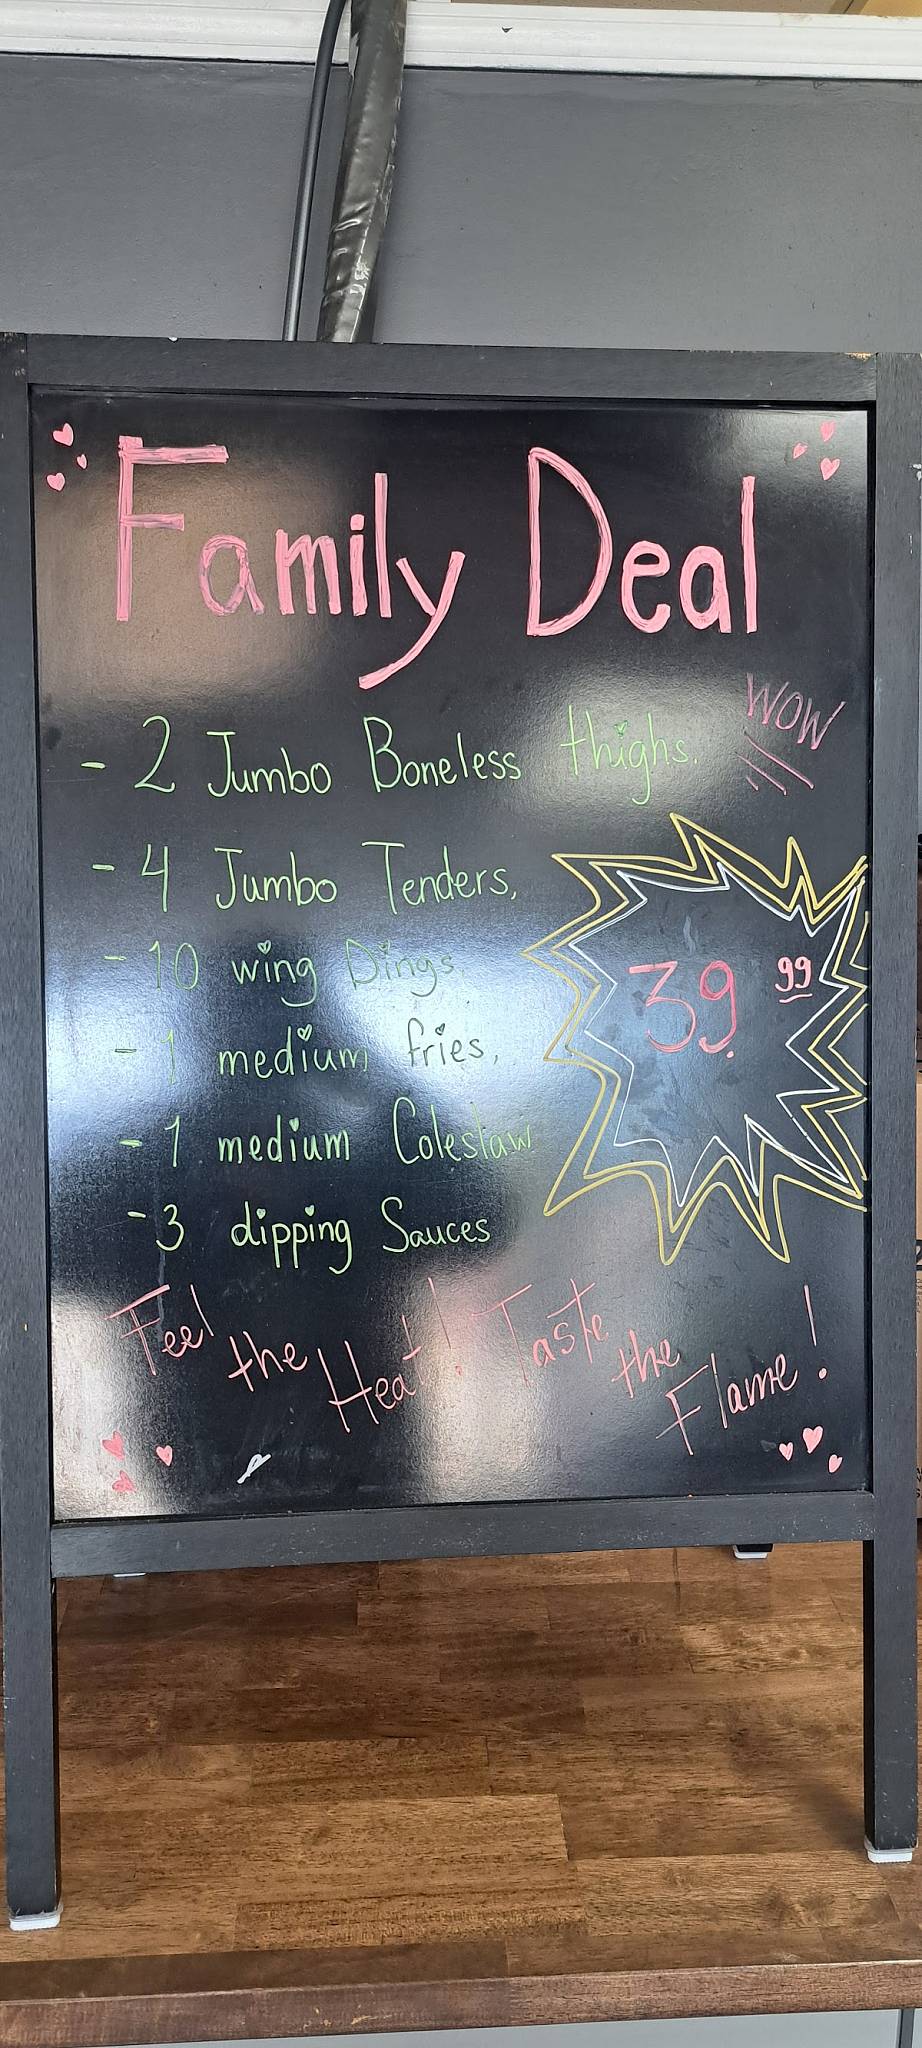 Family Deal
- 2 Jumbo Boneless thighs.
WOW
- 4 Jumbo Tenders,
- 10 wing Dings,
39.99
- 1 medium fries,
- 1 medium Coleslaw
- 3 dipping Sauces
Feel the Heat! Taste the Flame!